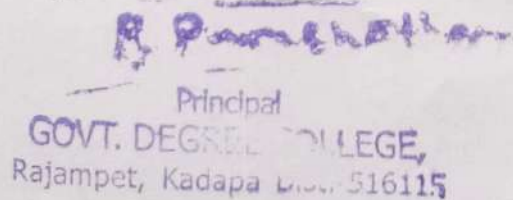 Principal
GOVT. DEGREE COLLEGE,
Rajampet, Kadapa Dist. 516115